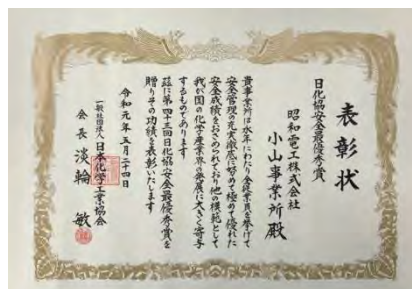 表彰状
日化協安全最優秀賞
昭和電工株式会社
小山事業所殿
貴事業所は永年にわたり全従業員を挙げて
安全管理の充実徹底に努めて極めて優れた
安全成績をおさめられており他の模範として
我が国の化学産業界の発展に大きく寄与
するものであります
茲に第四十三回日化協安全最優秀賞を
贈りその功績を表彰いたします
令和元年五月二十四日
一般社団法人日本化学工業協会
会長 淡輪 敏